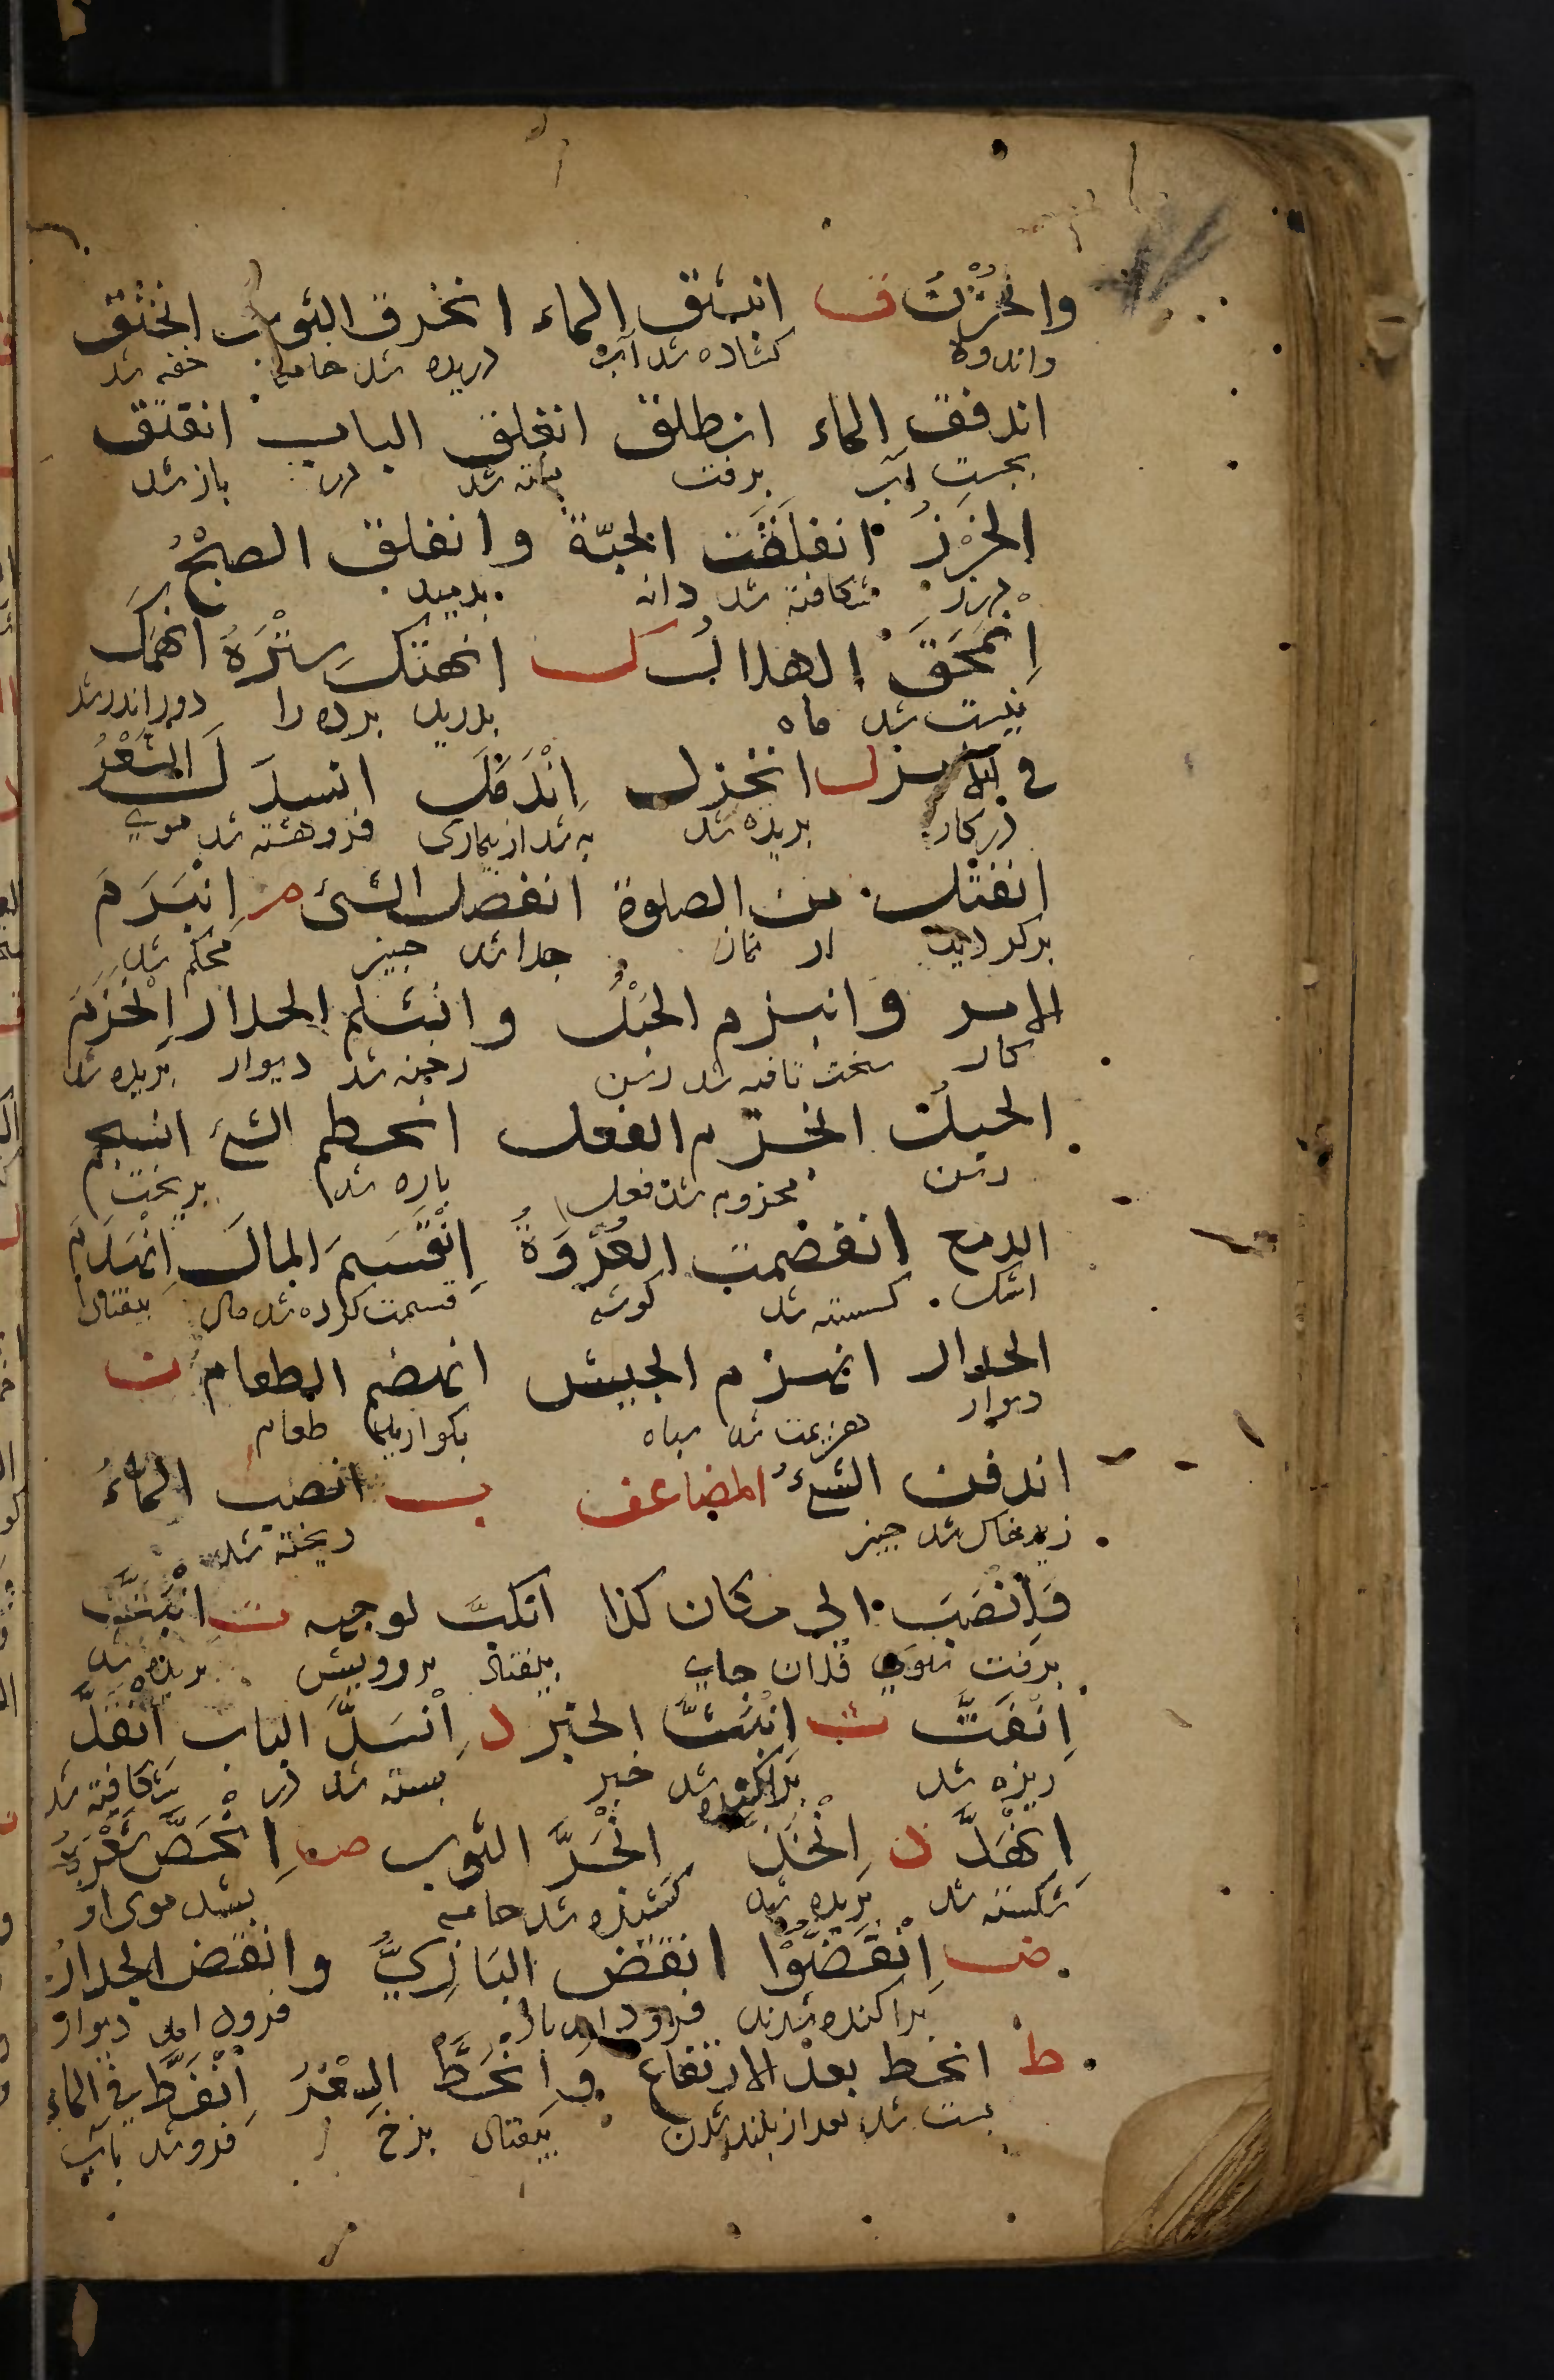 والحُزْنُ ق انبثق الماء انخرق الثوب انخنق
واندوه کشاده شد آب دریده شد جامه خفه شد
اندفق الماء انطلق انغلق الباب انفتق
بجست آب برفت بسته شد در باز شد
الخَرْزُ انفلقت الحبّة وانفلق الصبْحُ
درز شکافته شد دانه بدمید
اِنْمَحَقَ الهلالُ ك انهتك سِتْرُهُ انهمك
نیست شد ماه بدرید پرده را دور اندر شد
في الامر ل انخزل اِنْدَمَلَ انسدل الشَعْرُ
در کار بریده شد به شد از بیماری فروهشته شد موی
انفتل من الصلوة انفصل الشئ م اِنْبَرَمَ
برکردید از نماز جدا شد چیز محکم شد
الامر وانبرم الحَبْلُ وانثلم الجدار اِنْخَرَمَ
کار سخت تافته شد رسن رخنه شد دیوار بریده شد
الحبل انجزم الفعل انحطم الشئ انسجم
رسن مجزوم شد فعل پاره شد بریخت
الدمع انفصمت العُرْوَةُ اِنْقَسَمَ المال اِنْهَدَمَ
اشک کسسته شد کوشه قسمت کرده شد مال بیفتاد
الجدار انهزم الجيش انهضم الطعام ن
دیوار هزیمت شد سپاه بکوارید طعام
اندفن الشئُ المضاعف ب انصبّ الماءُ
زیر خاک شد چیز ریخته شد
وَاِنْصَبَّ الى مكان كذا انكبَّ لوجهه ت اِنْبَتَّ
برفت سوی فلان جای بیفتاد بر رویش بریده شد
اِنْفَتَّ ث اِنْبَثَّ الخبر ل اِنْسَلَّ الباب اِنْفَلَّ
ریزه شد پراکنده شد خبر بسته شد در شکافته شد
اِنْهَدَّ ذ اِنْجَذَّ اِنْجَرَّ الثوب ص اِنْحَصَّ شَعْرُهُ
شکسته شد بریده شد کشیده شد جامه بشد موی او
ض اِنْفَضُّوْا انقضّ البَازِيُّ وانقضّ الجدارُ
پراکنده شدند فرود آمد باز فرود آمد دیوار
ط انحط بعد الارتفاع وانحَطَّ السِعْرُ اِنْغَطَّ في الماء
پست شد بعد از بلند شدن بیفتاد نرخ فرو شد بآب